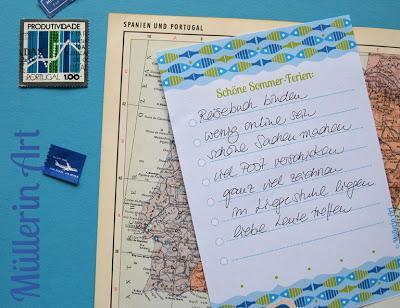 PRODUTIVIDADE
PORTUGAL 1.00
SPANIEN UND PORTUGAL
Schöne Sommer-Ferien:
Reisebuch binden
wenig online sein
schöne Sachen machen
viel Post verschicken
ganz viel zeichnen
im Liegestuhl liegen
liebe Leute treffen
Müllerin Art